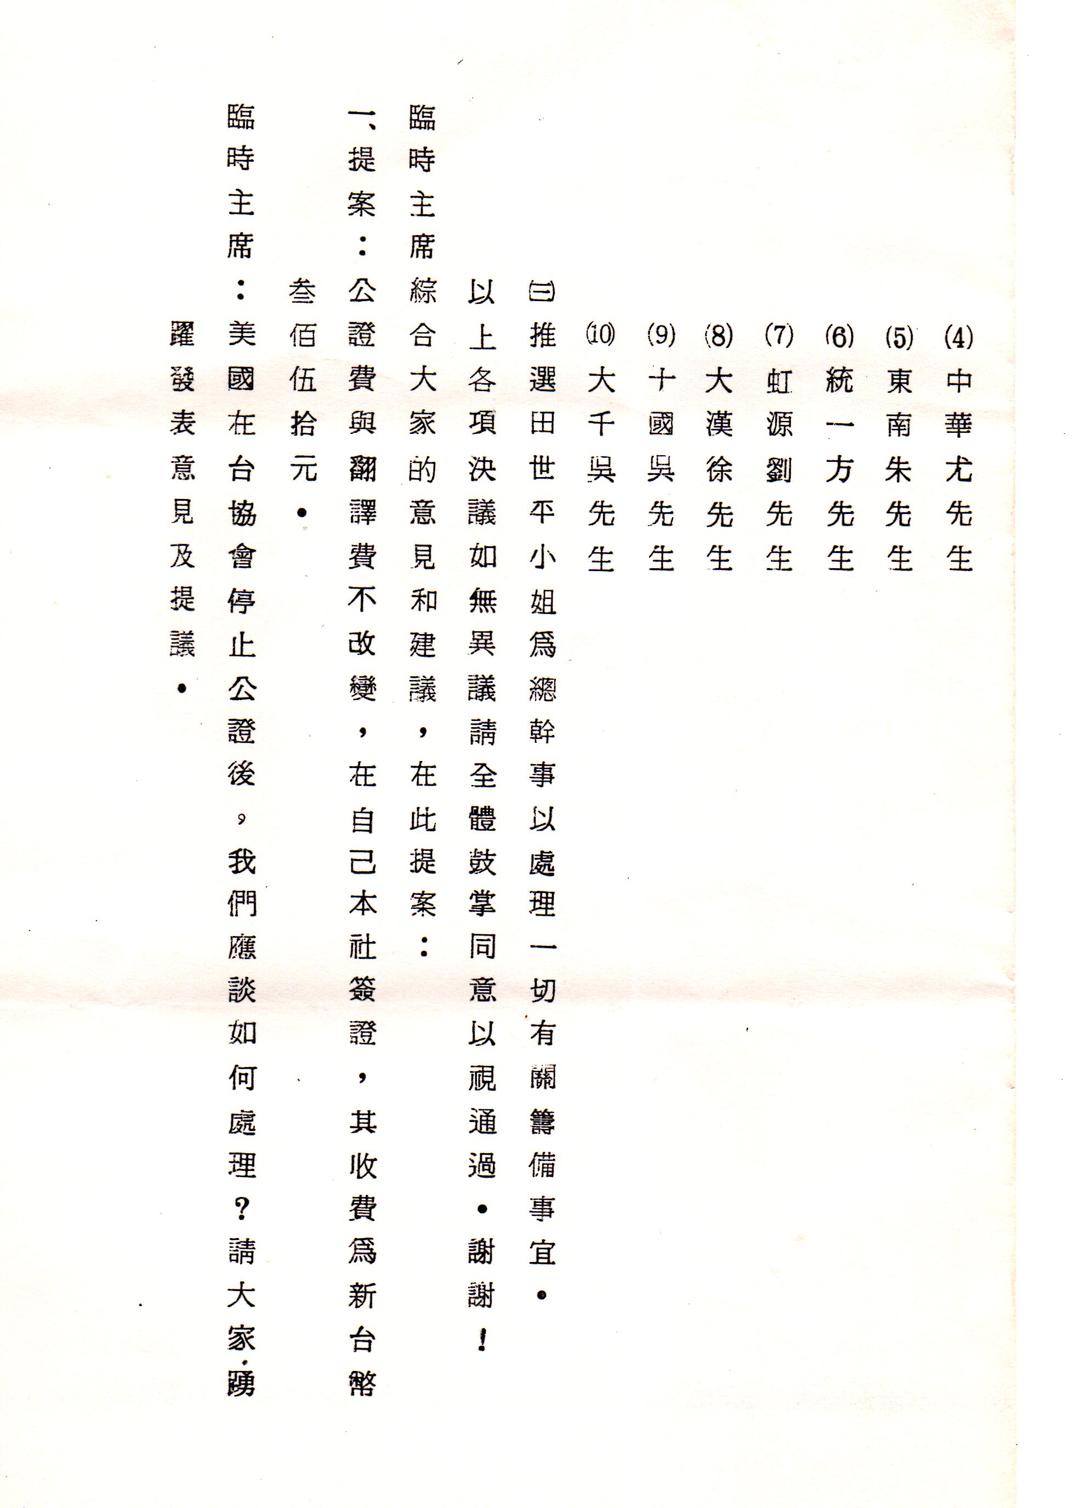 (4)中華尤先生
(5)東南朱先生
(6)統一方先生
(7)虹源劉先生
(8)大漢徐先生
(9)十國吳先生
(10)大千吳先生
㈢推選田世平小姐為總幹事以處理一切有關籌備事宜•
以上各項決議如無異議請全體鼓掌同意以視通過•謝謝！
臨時主席綜合大家的意見和建議，在此提案：
一、提案：公證費與翻譯費不改變，在自己本社簽證，其收費為新台幣
叁佰伍拾元•
臨時主席：美國在台協會停止公證後，我們應談如何處理？請大家踴
躍發表意見及提議•